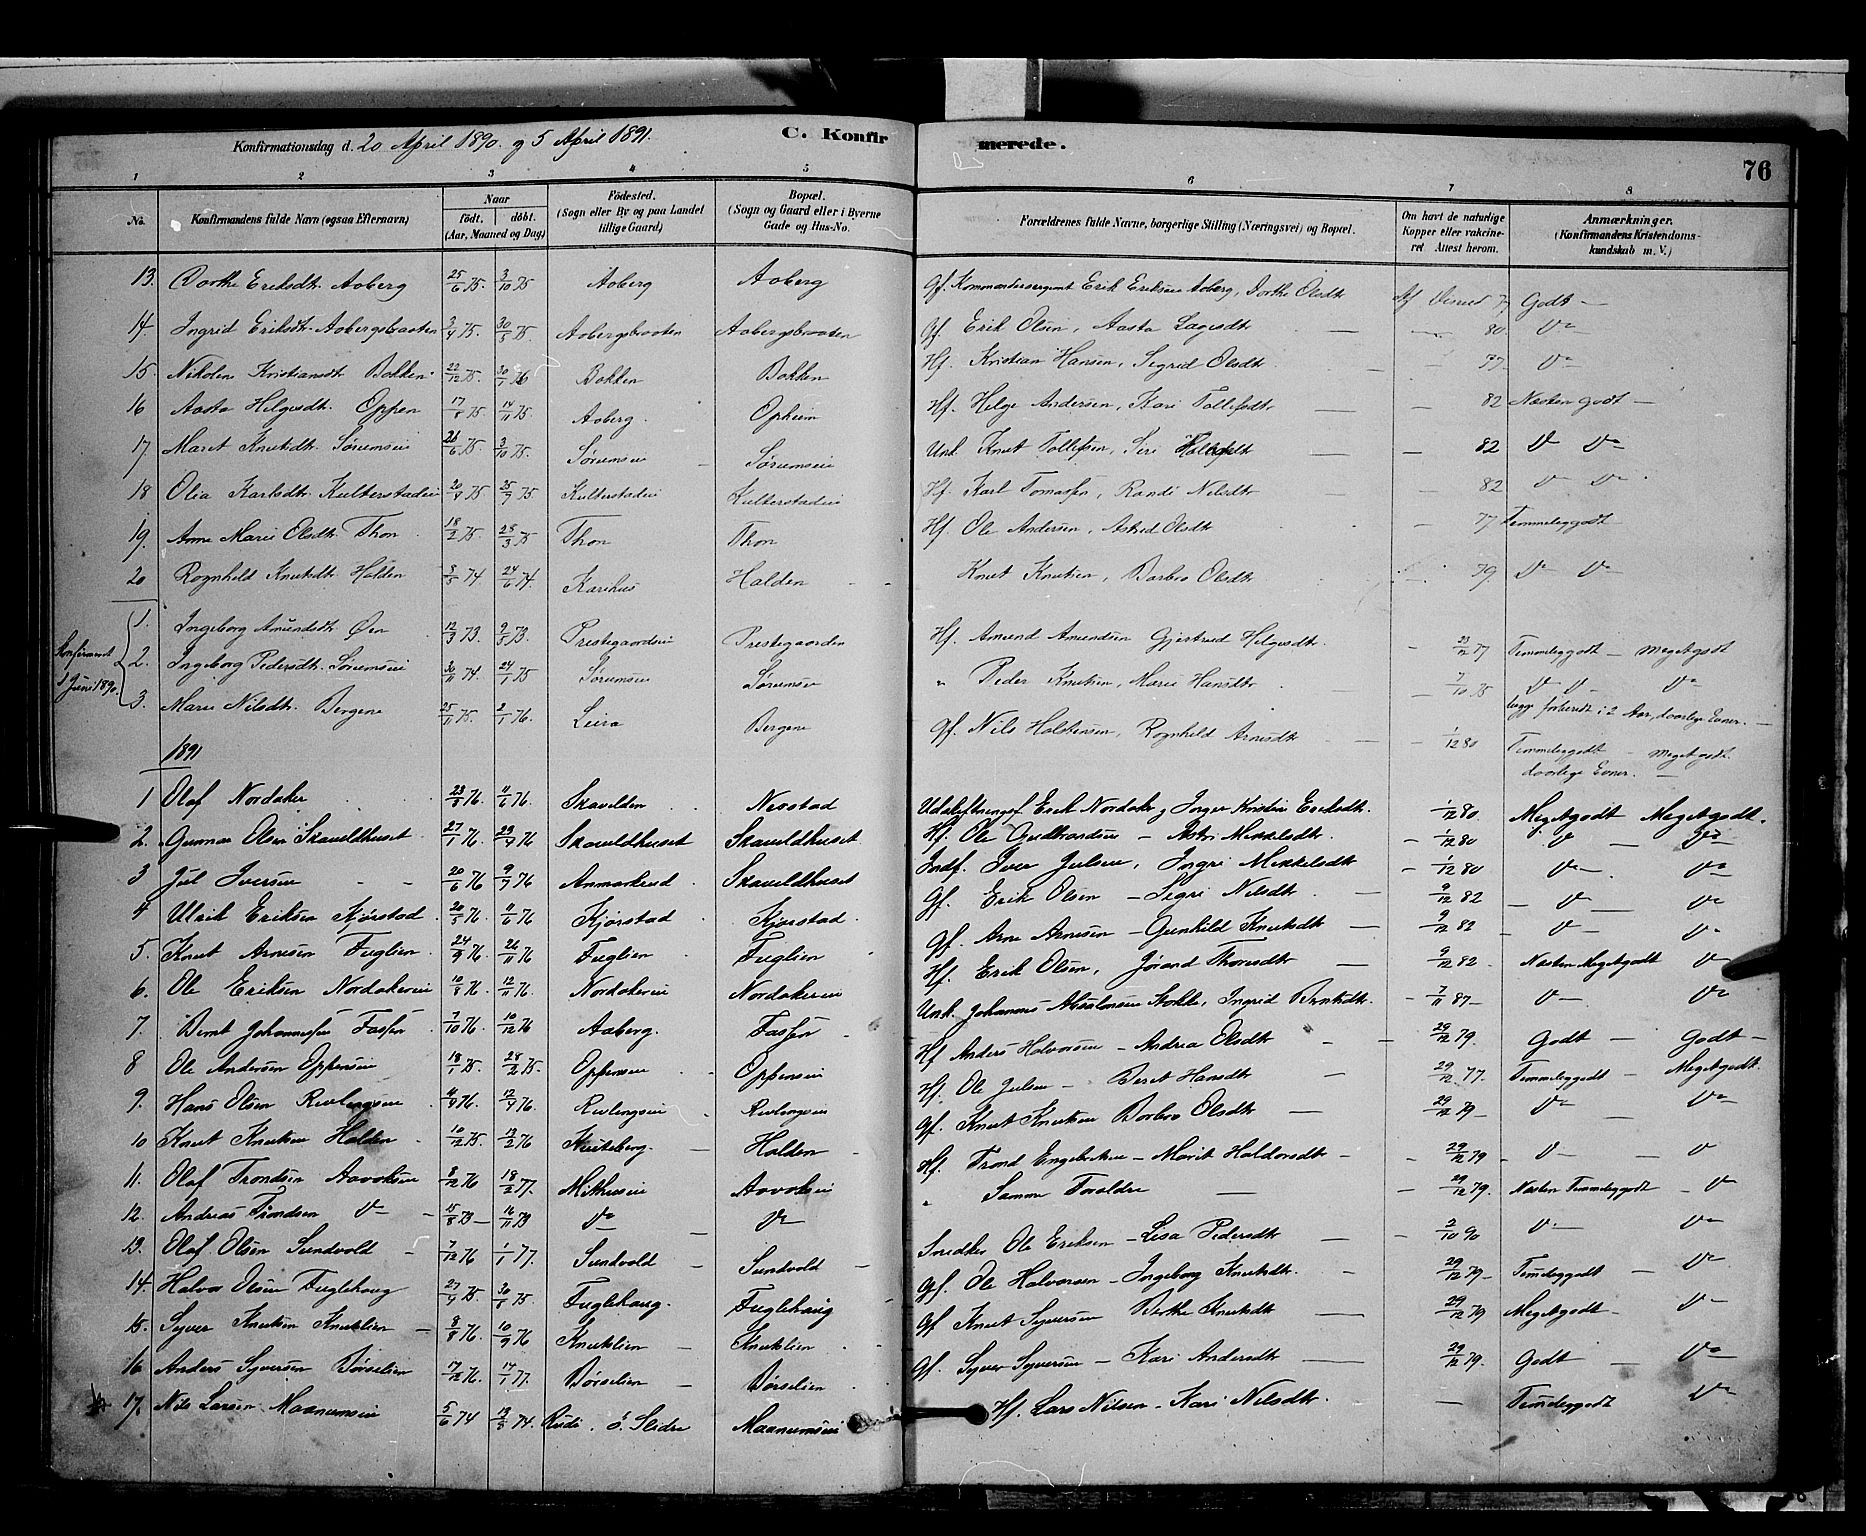 Konfirmationsdag d. 20 April 1890. og 5 April 1891. C. Konfirmerede. 76
1 2 3 4 5 6 7 8
No. Konfirmandens fulde Navn (ogsaa Efternavn) Naar födt. döbt. (Aar, Maaned og Dag) Födested. (Sogn eller By og paa Landet tillige Gaard) Bopæl. (Sogn og Gaard eller i Byerne Gade og Hus-No. Forældrenes fulde Navne, borgerlige Stilling (Næringsvei) og Bopæl. Om havt de naturlige Kopper eller vakcineret Attest herom. Anmærkninger. (Konfirmandens Kristendomskundskab m. V.)
13. Dorthe Eriksdtr. Aoberg 25/6 75. 3/10 75 Aoberg Aoberg Gf. Erik Eriksen Aoberg, Dorthe Olsdtr Godt —
14. Ingrid Eriksdtr. Aobergsbraaten 3/4 75. 30/5 75. Aobergsbraaten Aobergsbraaten Gf. Erik Olsen, Aasta Lagesdtr — 80 Do
15. Nikoline Kristiansdtr Bakken 22/12 75. 30/1 76 Bakken Bakken Hf. Kristian Hansen, Sigrid Olsdtr — 77. Do
16 Aasta Helgesdtr. Oppen 17/8 75 14/11 75. Aoberg. Opheim Hf. Helge Andersen, Kari Tollefsdtr — 82 Næsten godt —
17. Marit Knutsdtr. Sørumseie 26/6 75. 3/10 75. Sørumseie Sørumseie Knut Tollefsen, Siri — 82 Do Do
18 Olia Karlsdtr. Kulterstadeie 20/7 75 25/9 75. Kulterstadeie Kulterstadeie Hf. Karl Tomassen, Randi Nilsdtr — 82 Do Do
19. Anne Marie Olsdtr. Thon 18/2 75. 28/3 75 Thon Thon Hf. Ole Andersen, Astrid Olsdtr — 77. Temmeleggodt
20 Rognhild Knutsdtr. Halden 74 24/6 74 Karihus Halden Knut Knutsen, Barbro Olsdtr 79 Do Do
Konfirmeret 1 Juni 1890.
1. Ingeborg Amundsdtr. Øen 12/3 73. 9/5 73. Prestegaardseie Prestegaarden Hf. Amund Amundsen Gjertrud Helgesdtr. 23/12 77 Temmeleggodt — Megetgodt
2. Ingeborg Pedersdtr. Sørumseie 30/11 74. 24/1 75 Sørumseie Sørumseie " Peder Knutsen, Marie Hansdtr. 7/10 75 Do Do Do
3. Marie Nilsdtr. Bergene 25/11 75. 2/1 76. Leira Bergene Gf. Nils Halstensen, Rognhild Arnesdtr — 1/12 80 Temmeleggodt — Megetgodt.
begge forberedt i 2 Aar, daarlige Evner. —
daarlige Evner. —
1891
1 Olaf Nordaker 23/3 76. 11/6 76. Skavelden Neostad Erik Nordaker og Inger Kristine Eriksdtr. 1/12 80. Megetgodt Megetgodt.
2. Gunnar Olsen Skaveldhuset 27/1 76. 23/4 76 Skaveldhuset Skaveldhuset Hf. Ole Gudbrandsen — Mikkelsdtr. 1/12 80 Do Do
3 Jul Iversen 20/6 76 9/7 76 Anmarkrud Skaveldhuset Indf. Iver Julsen, Ingri Mikkelsdtr 1/12 80 Do Do
4 Ulrik Eriksen Kjørstad 20/5 76. 11/6 76 Kjørstad Kjørstad. Gf. Erik Olsen — Sigri Nilsdtr. 9/12 82 Do Do
5. Knut Arnesen Fuglien 24/9 76. 26/11 76 Fuglien Fuglien Gf. Arne Arnesen — Gunhild Knutsdtr — 9/12 82 Do Do
6. Ole Eriksen Nordakereie 10/8 76 12/11 76. Nordakereie Nordakereie Hf. Erik Olsen, Jørand Thoresdtr — 9/12 82. Næsten Megetgodt Do
7. Bernt Johannesen Fossen 7/10 76. 10/12 76 Aaberg. Fossen Johannes Absalonsen Ingrid Berntsdtr. 7/11 87 — Do Do
8 Ole Andersen Oppeneie 18/1 75. 28/2 75. Oppeneie Oppeneie Hf Anders Halvorsen — Andrea Olsdtr — 29/12 79. Godt — Godt —
9. Hans Olsen Revlingseie 4/4 76. 17/4 76. Revlingseie Revlingseie Hf. Ole Julsen — Beret Hansdtr — 29/12 77. Temmeleggodt — Megetgodt.
10 Knut Knutsen Halden 10/12 75. 13/2 76 Halden Gf. Knut Knutsen Barbro Olsdtr — 29/12 79 Do Do
11. Olaf Trondsen Aavokseie 8/12 76 18/2 77. Mithuseie Aavokseie Hf. Trond Engebretsen — Marit Haldorsdtr — 29/12 79 Do Do
12. Andreas Trondsen Do 15/8 73 — 16/11 73 Do Do " Samme Foreldre — 29/12 79. Næsten Temmeleggodt — Do
13. Olaf Olsen Sundvold 7/12 76 1/1 77. Sundvold Sundvold Snedker Ole Eriksen — Lisa Pedersdtr — 2/10 90 Do Do
14. Halvor Olsen Fuglehaug 27/4 75. 30/5 75. Fuglehaug. Fuglehaug Gf. Ole Halvorsen — Ingeborg Knutsdtr. — 29/12 79 Temeleggodt — Do
15. Syver Knutsen Knutslien 8/8 76. 10/9 76 Knutslien Knutslien Gf Knut Syversen Berthe Knutsdtr — 29/12 79 Megetgodt — Do
16 Anders Syversen Børselien 17/12 76. 14/1 77. Børselien Børselien Gf. Syver Syversen — Kari Andersdtr — 29/12 79. Godt — Do
17. Nils Larsen Maanumseie 5/6 74 74. Rudi, ö. Slidre Maanumseie Hf. Lars Nilsen — Kari Nilsdtr. — Temeleggodt Do